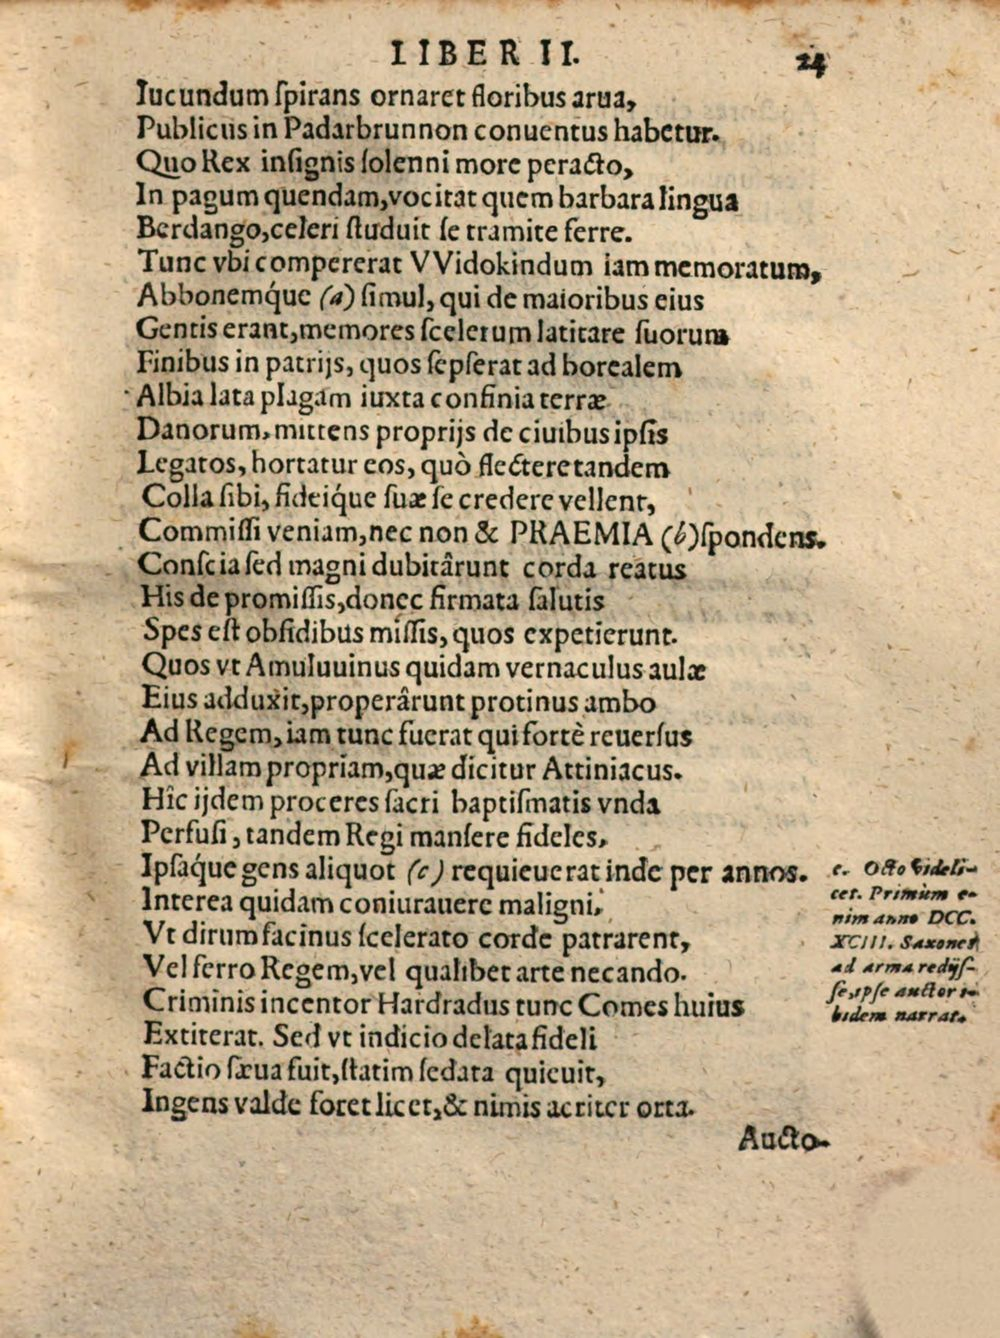 LIBER II. 24
Iucundum ſpirans ornaret floribus arua,
Publicus in Padarbrunnon conuentus habetur.
Quo Rex inſignis ſolenni more peracto,
In pagum quendam, vocitat quem barbara lingua
Berdango, celeri ſtuduit ſe tramite ferre.
Tunc vbi compererat VVidokindum iam memoratum,
Abbonemq́ue (a) ſimul, qui de maioribus eius
Gentis erant, memores ſcelerum latitare ſuorum
Finibus in patrijs, quos ſepſerat ad borealem
Albia lata plagam iuxta confinia terræ
Danorum, mittens proprijs de ciuibus ipſis
Legatos, hortatur eos, quò flectere tandem
Colla ſibi, fideiq́ue ſuæ ſe credere vellent,
Commiſſi veniam, nec non & PRAEMIA (b) ſpondens.
Conſcia ſed magni dubitârunt corda reatus
His de promiſſis, donec firmata ſalutis
Spes eſt obſidibus miſſis, quos expetierunt.
Quos vt Amuluuinus quidam vernaculus aulæ
Eius adduxit, properârunt protinus ambo
Ad Regem, iam tunc fuerat qui fortè reuerſus
Ad villam propriam, quæ dicitur Attiniacus.
Hîc ijdem proceres ſacri baptiſmatis vnda
Perfuſi, tandem Regi manſere fideles,
Ipſaq́ue gens aliquot (c) requieuerat inde per annos.
Interea quidam coniurauere maligni,
Vt dirum facinus ſcelerato corde patrarent,
Vel ferro Regem, vel qualibet arte necando.
Criminis incentor Hardradus tunc Comes huius
Extiterat. Sed vt indicio delata fideli
Factio ſæua fuit, ſtatim ſedata quieuit,
Ingens valde foret licet, & nimis acriter orta.
Aucto-
c. Octo videli-
cet. Primùm e-
nim anno DCC.
XCIII. Saxones
ad arma redijſ-
ſe, ipſe auctor i-
bidem narrat.